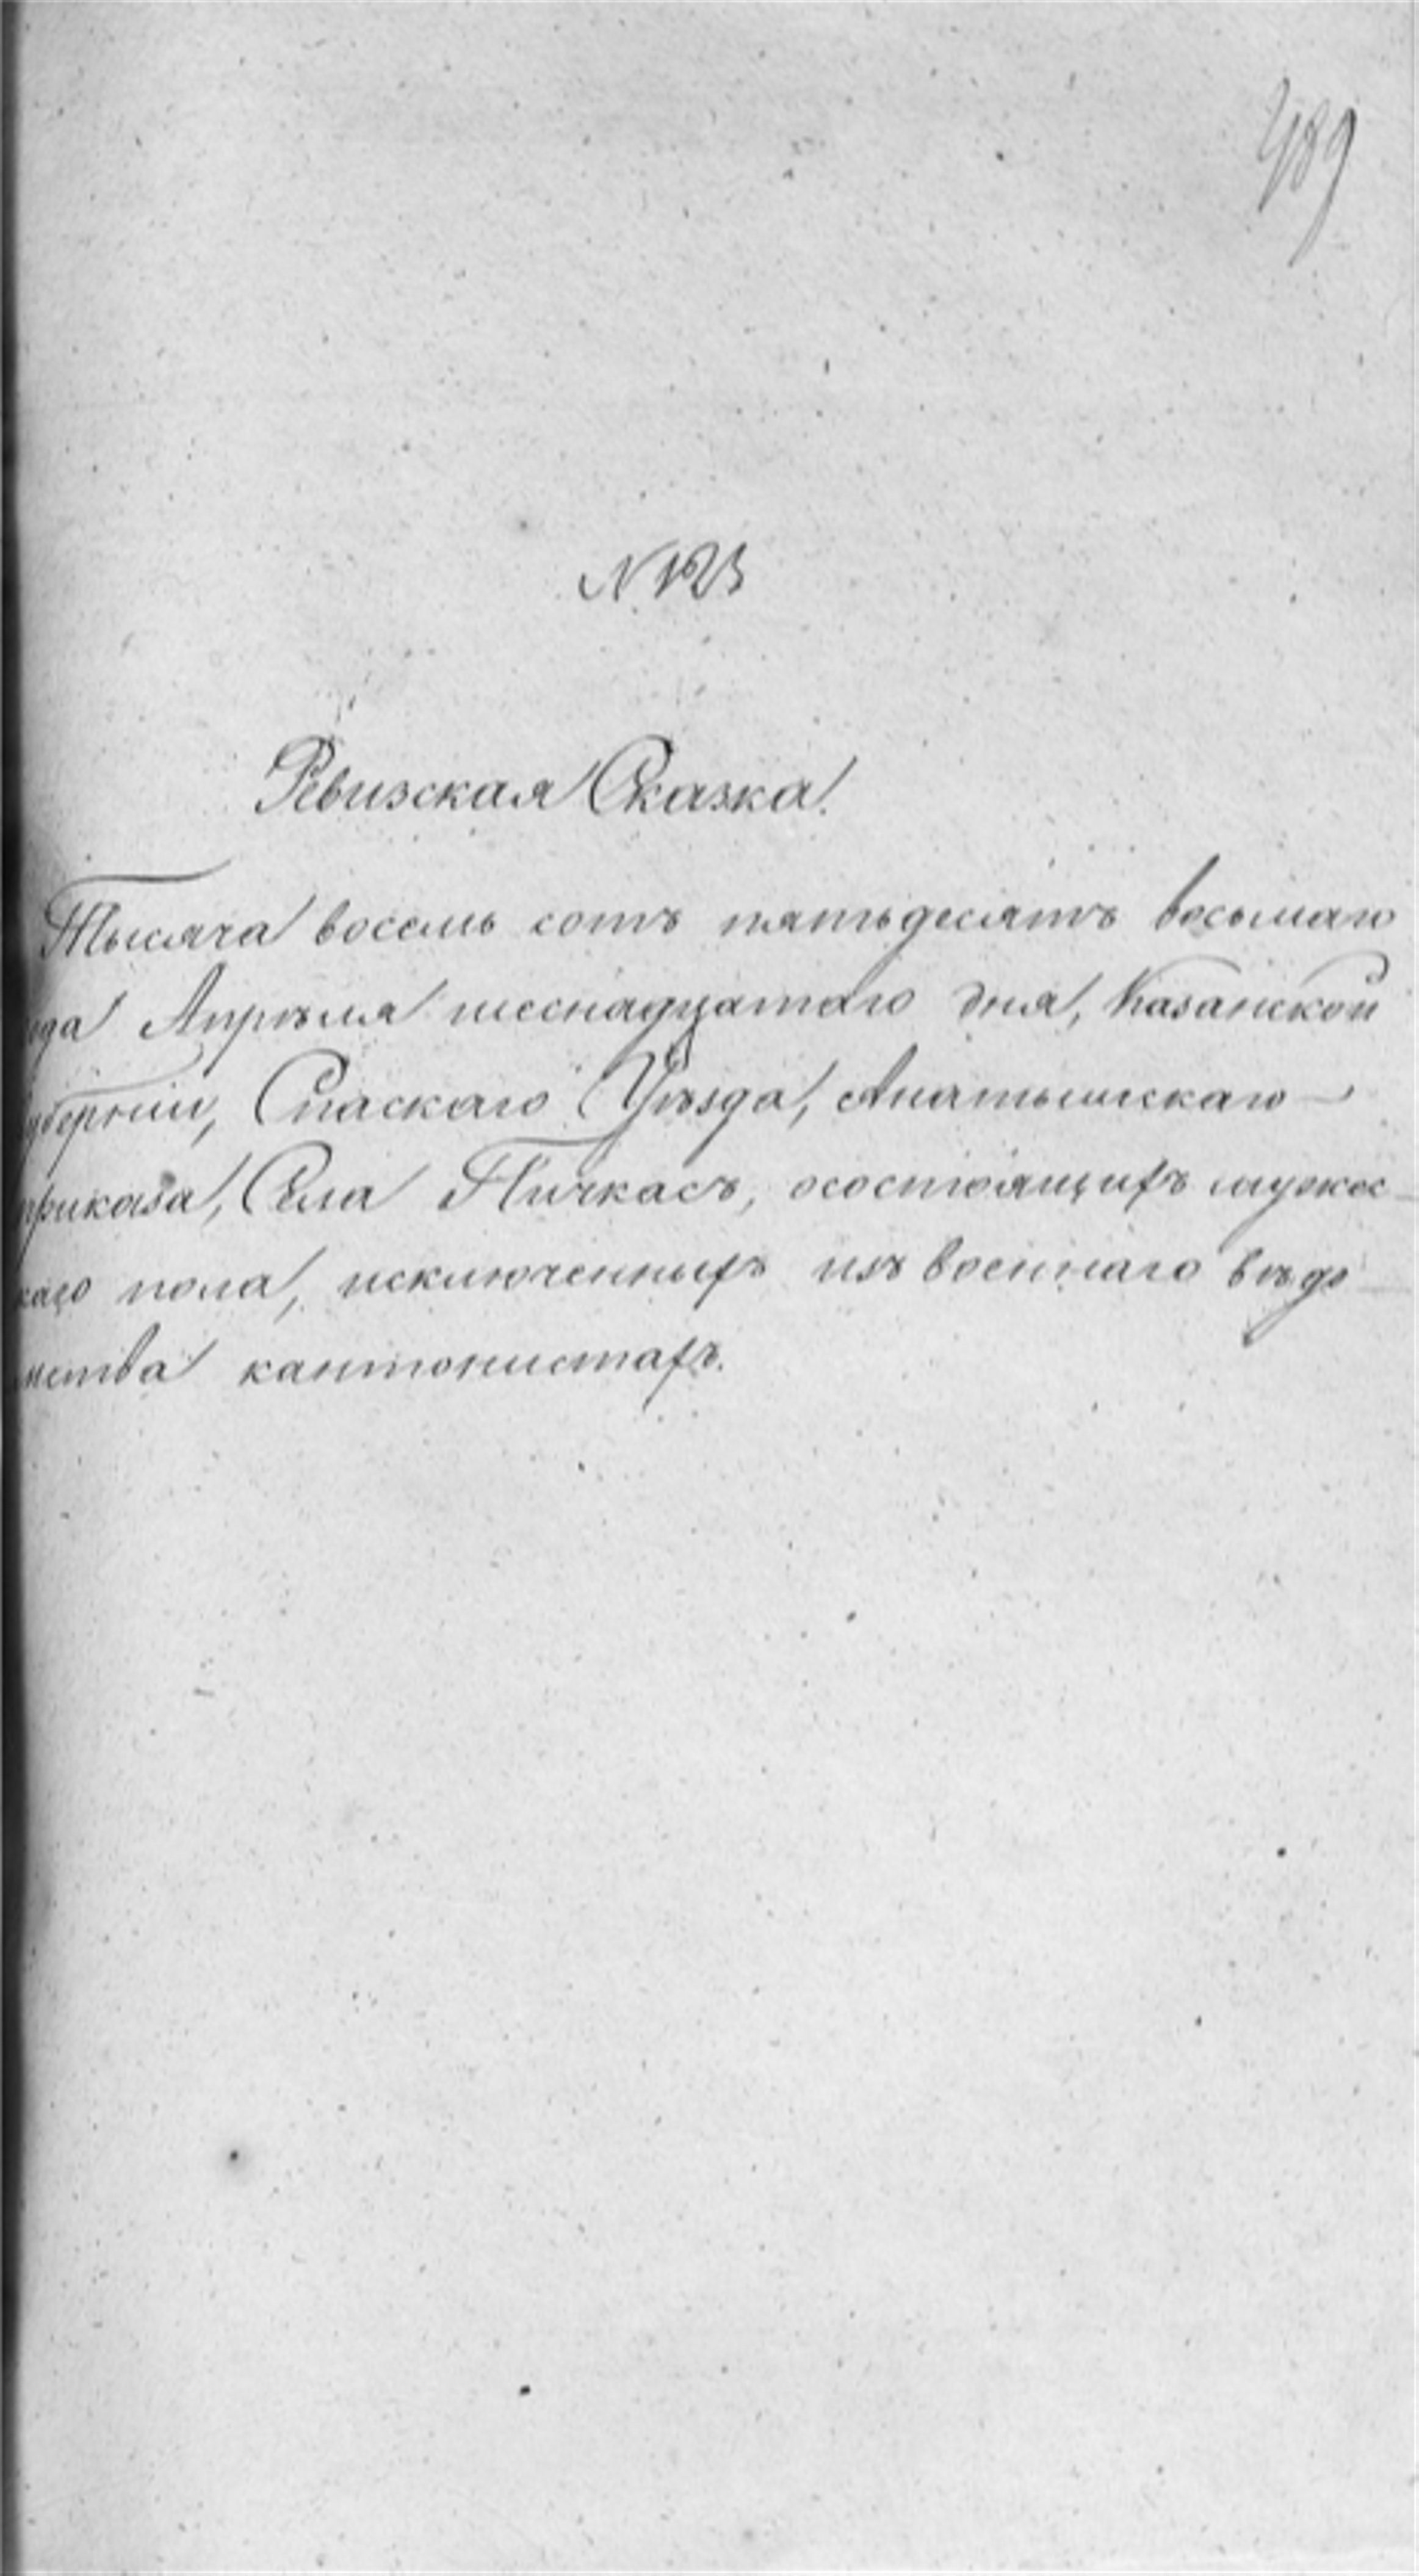 489
N 123
Ревизская Сказка.
Тысяча восемь сотъ пятьдесятъ восьмаго
года Апрѣля шеснадцатаго дня, Казанской
Губернии, Спаскаго Уѣзда, Анатышскаго
приказа, Села Пичкасъ, осостоящихъ мужес-
каго пола, исключенныхъ изъ военнаго вѣдо
мства кантонистахъ.